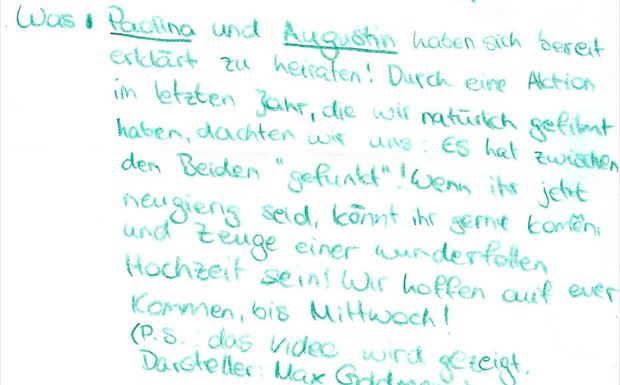 Was: Paolina und Augustin haben sich bereit
erklärt zu heiraten! Durch eine Aktion
im letzten Jahr, die wir natürlich gefilmt
haben, dachten wir uns: Es hat zwischen
den Beiden "gefunkt"! Wenn ihr jetzt
neugierig seid, könnt ihr gerne komēn
und Zeuge einer wunderfollen
Hochzeit sein! Wir hoffen auf euer
Kommen, bis Mittwoch!
(P.S.: das Video wird gezeigt.
Darsteller: Max